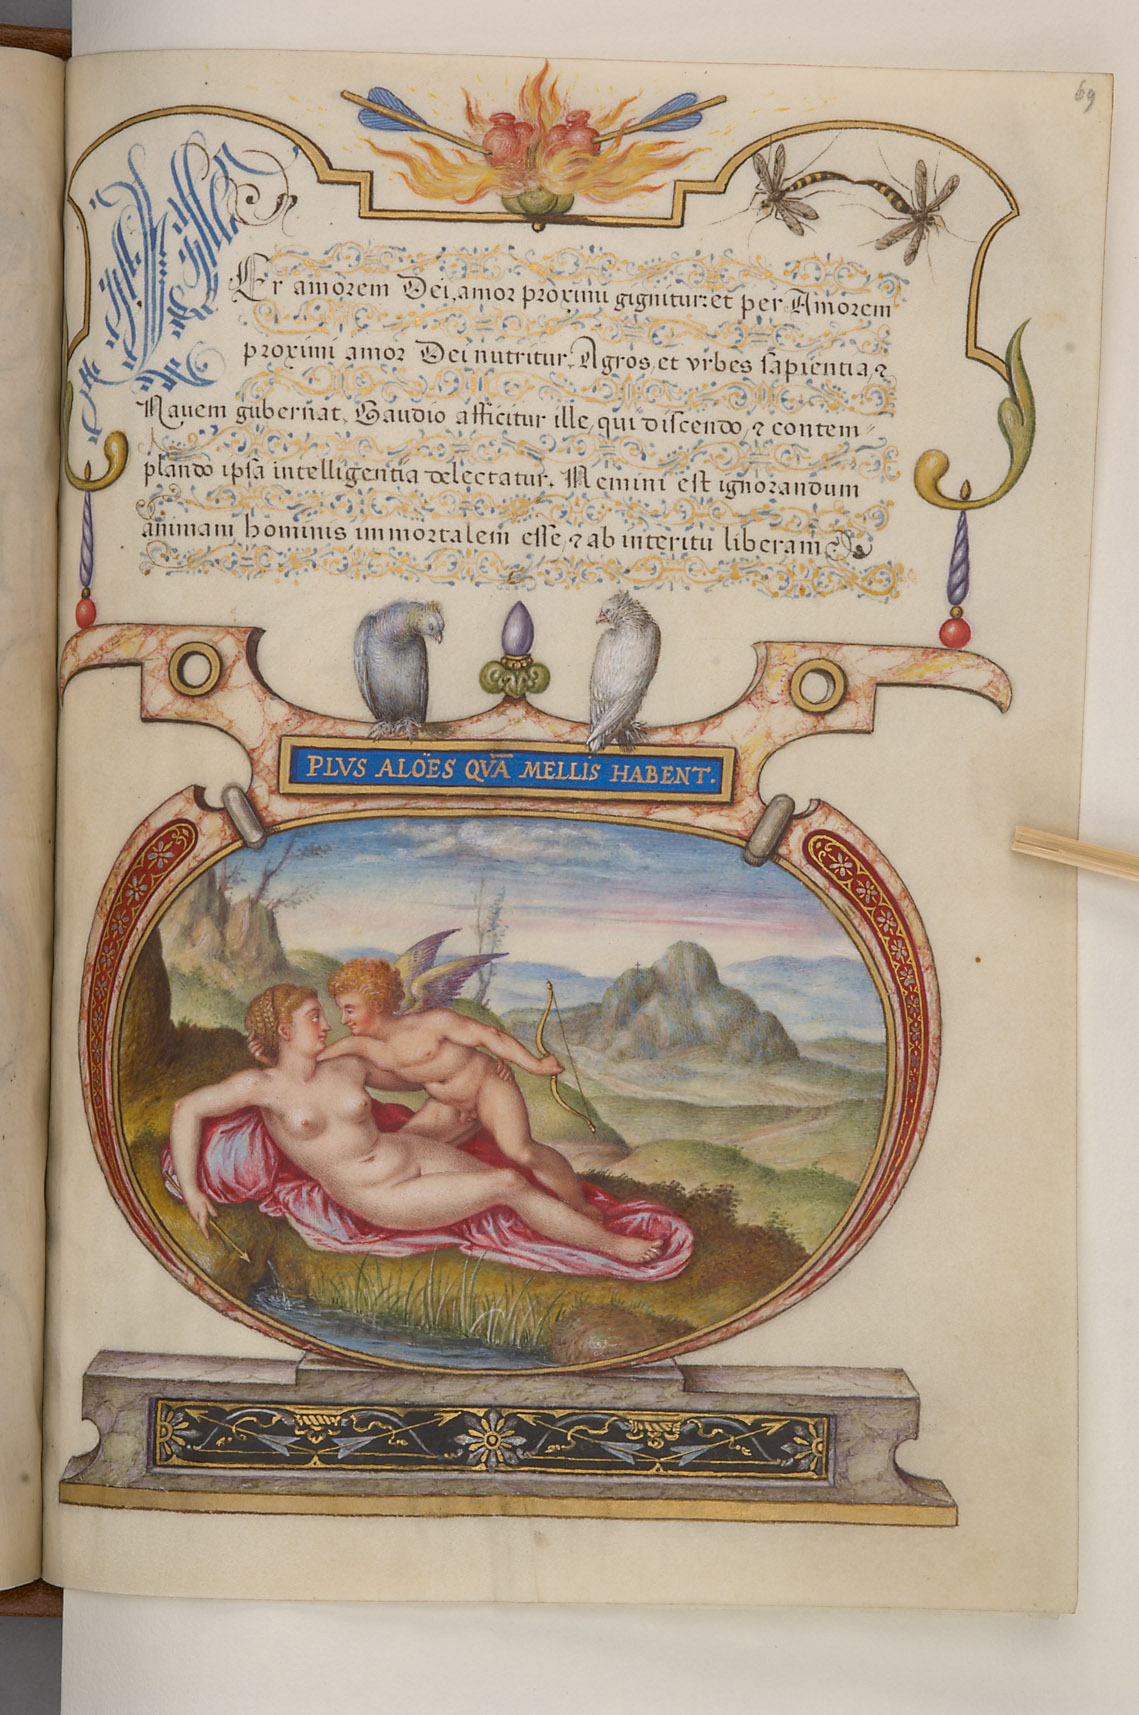 69
Per amorem Dei, amor proximi gignitur: et per Amorem
proximi amor Dei nutritur. Agros, et vrbes sapientia, ⁊
Nauem gubernat. Gaudio afficitur ille, qui discendo, ⁊ contem-
plando ipsa intelligentia delectatur. Nemini est ignorandum
animam hominis immortalem esse, ⁊ ab interitu liberam
PLVS ALOËS QVĀ MELLIS HABENT.